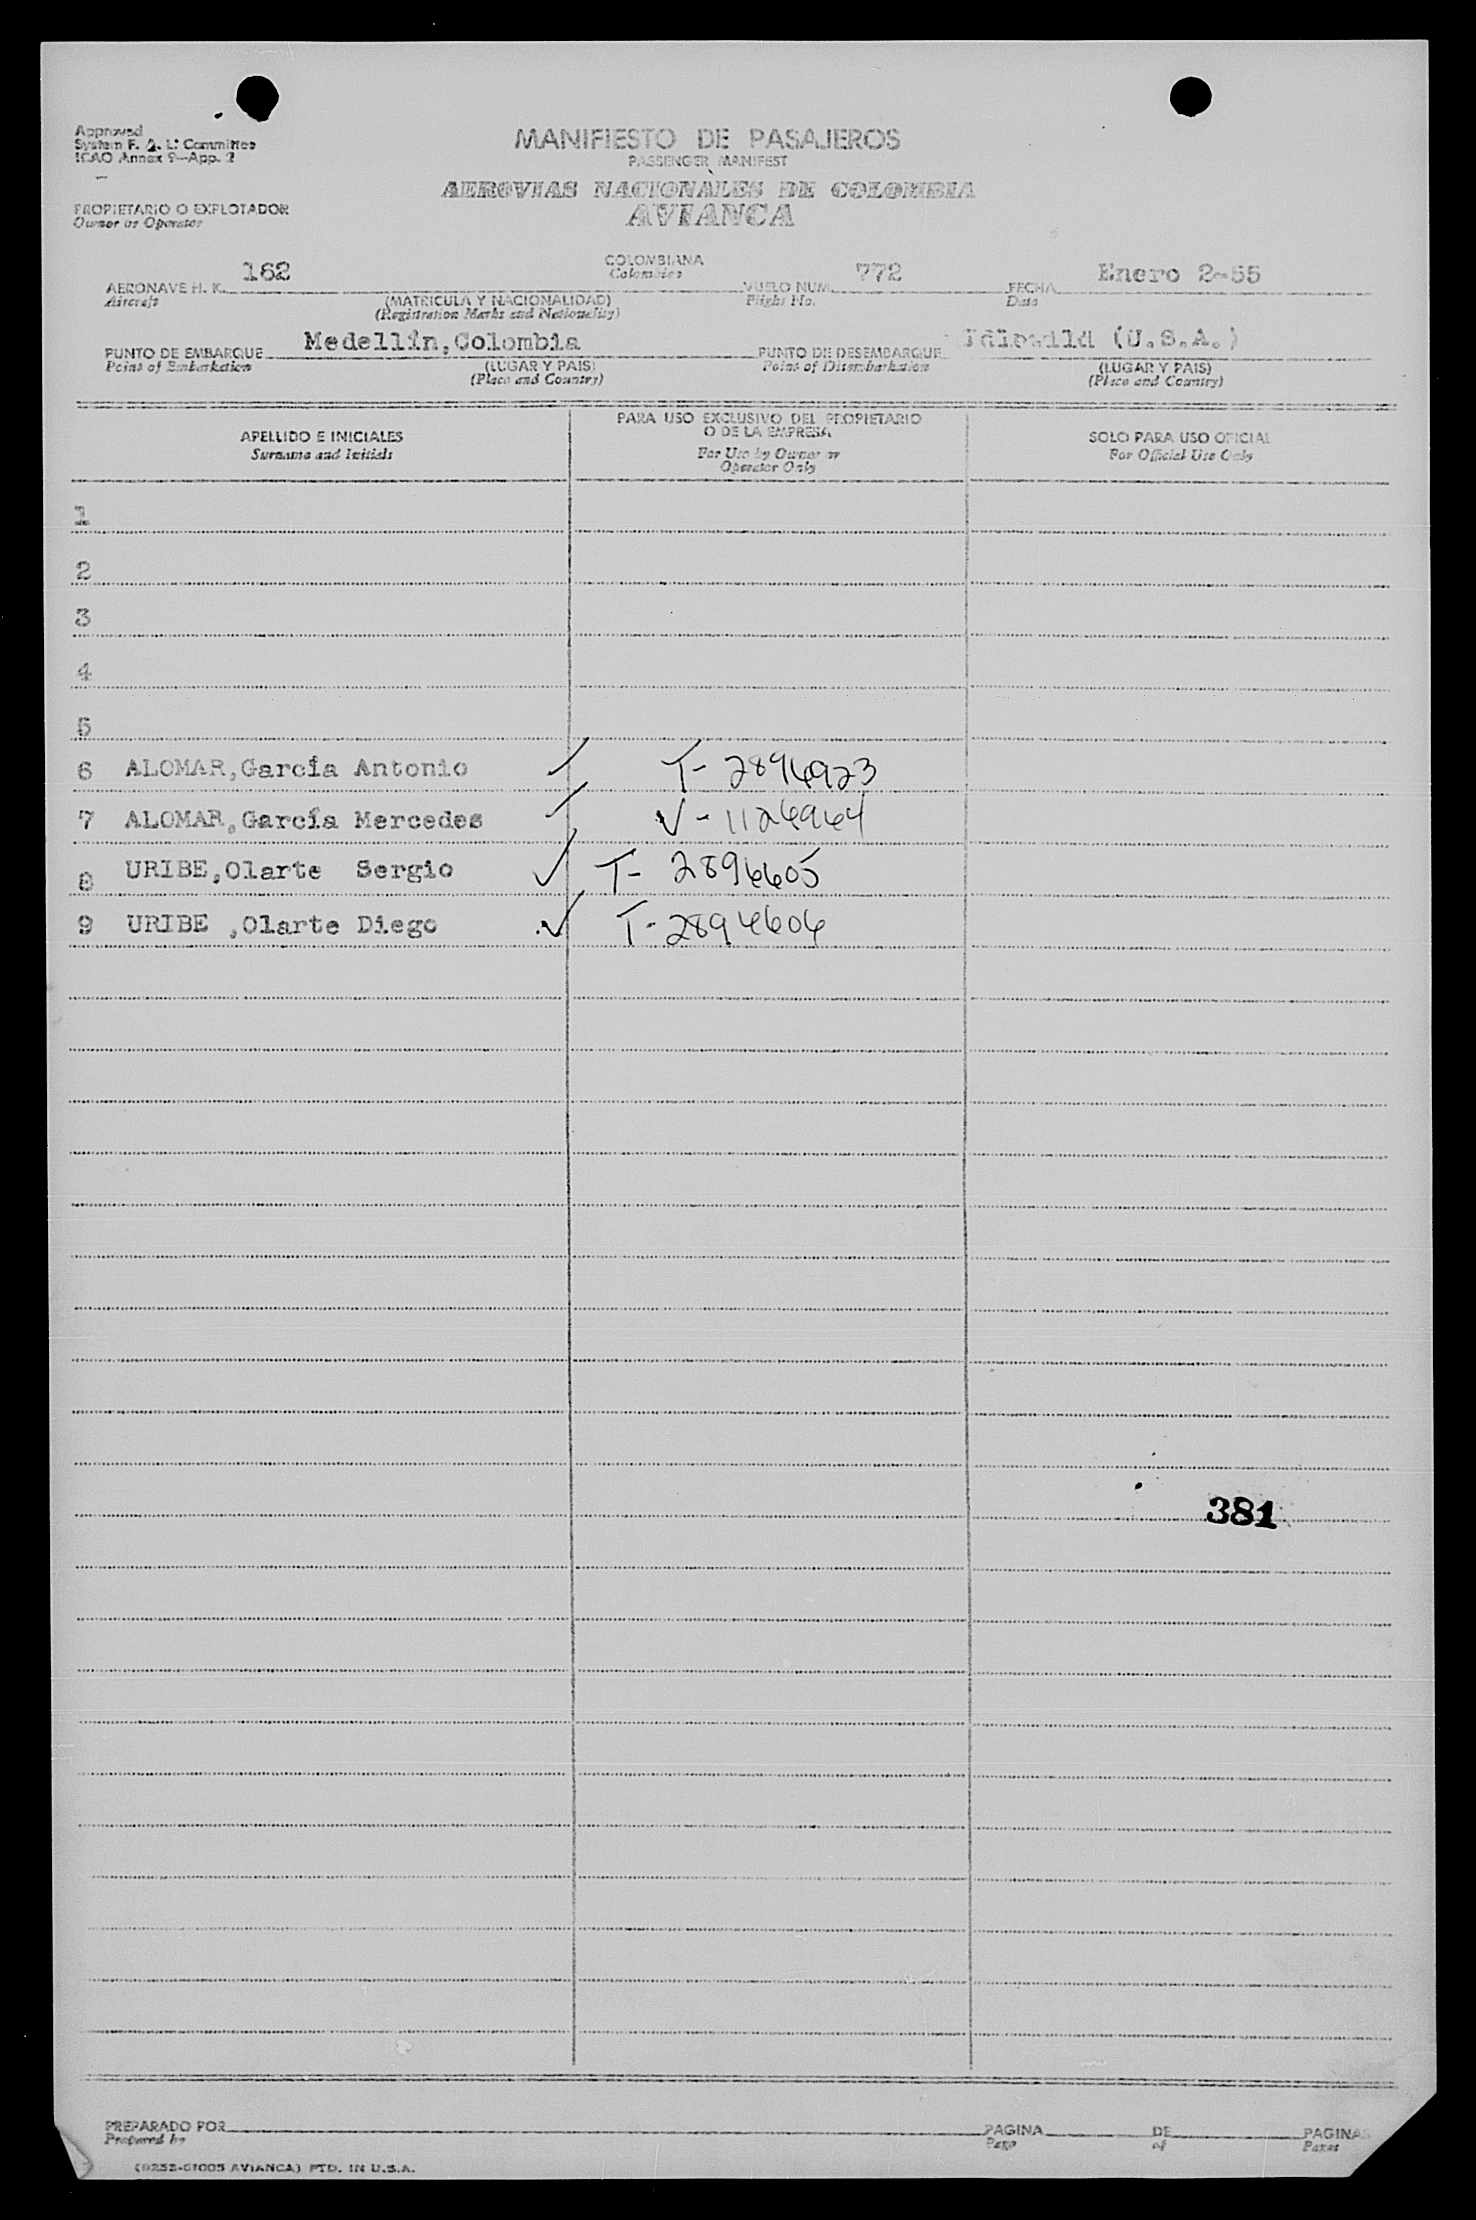 Approved
System F. A. L. Committee
ICAO Annex 9—App. 2
MANIFIESTO DE PASAJEROS
PASSENGER MANIFEST
AEROVIAS NACIONALES DE COLOMBIA
AVIANCA
PROPIETARIO O EXPLOTADOR
Owner or Operator
AERONAVE H. K. 162 COLOMBIANA VUELO NUM. 772 FECHA Enero 2-55
Aircraft Colombian Flight No. Date
(MATRICULA Y NACIONALIDAD)
(Registration Marks and Nationality)
PUNTO DE EMBARQUE Medellín,Colombia PUNTO DE DESEMBARQUE Idlewild (U.S.A.)
Point of Embarkation (LUGAR Y PAIS) Point of Disembarkation (LUGAR Y PAIS)
(Place and Country) (Place and Country)
APELLIDO E INICIALES
Surname and Initials
PARA USO EXCLUSIVO DEL PROPIETARIO
O DE LA EMPRESA
For Use by Owner or
Operator Only
SOLO PARA USO OFICIAL
For Official Use Only
1
2
3
4
5
6 ALOMAR,García Antonio ✓ T- 2894923
7 ALOMAR,García Mercedes ✓ V-1126964
8 URIBE,Olarte Sergio ✓ T- 2896605
9 URIBE ,Olarte Diego ✓ T-2896606
381
PREPARADO POR PAGINA DE PAGINAS
Prepared by Page of Pages
(0252-01005 AVIANCA) PTD. IN U.S.A.